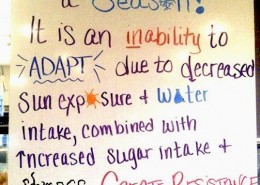 a Season!
It is an inability to
ADAPT due to decreased
Sun exposure + Water
intake, combined with
increased sugar intake +
Create Resistance